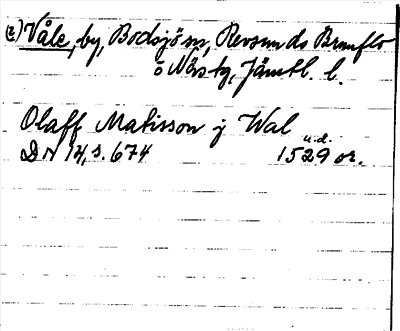 (2) Våle, by, Bodsjö sn, Revsunds Brunflo
o Näs tg, Jämtl. l.
Olaff Matisson j Wal
u.d.
DN 14, s. 674 1529 or.